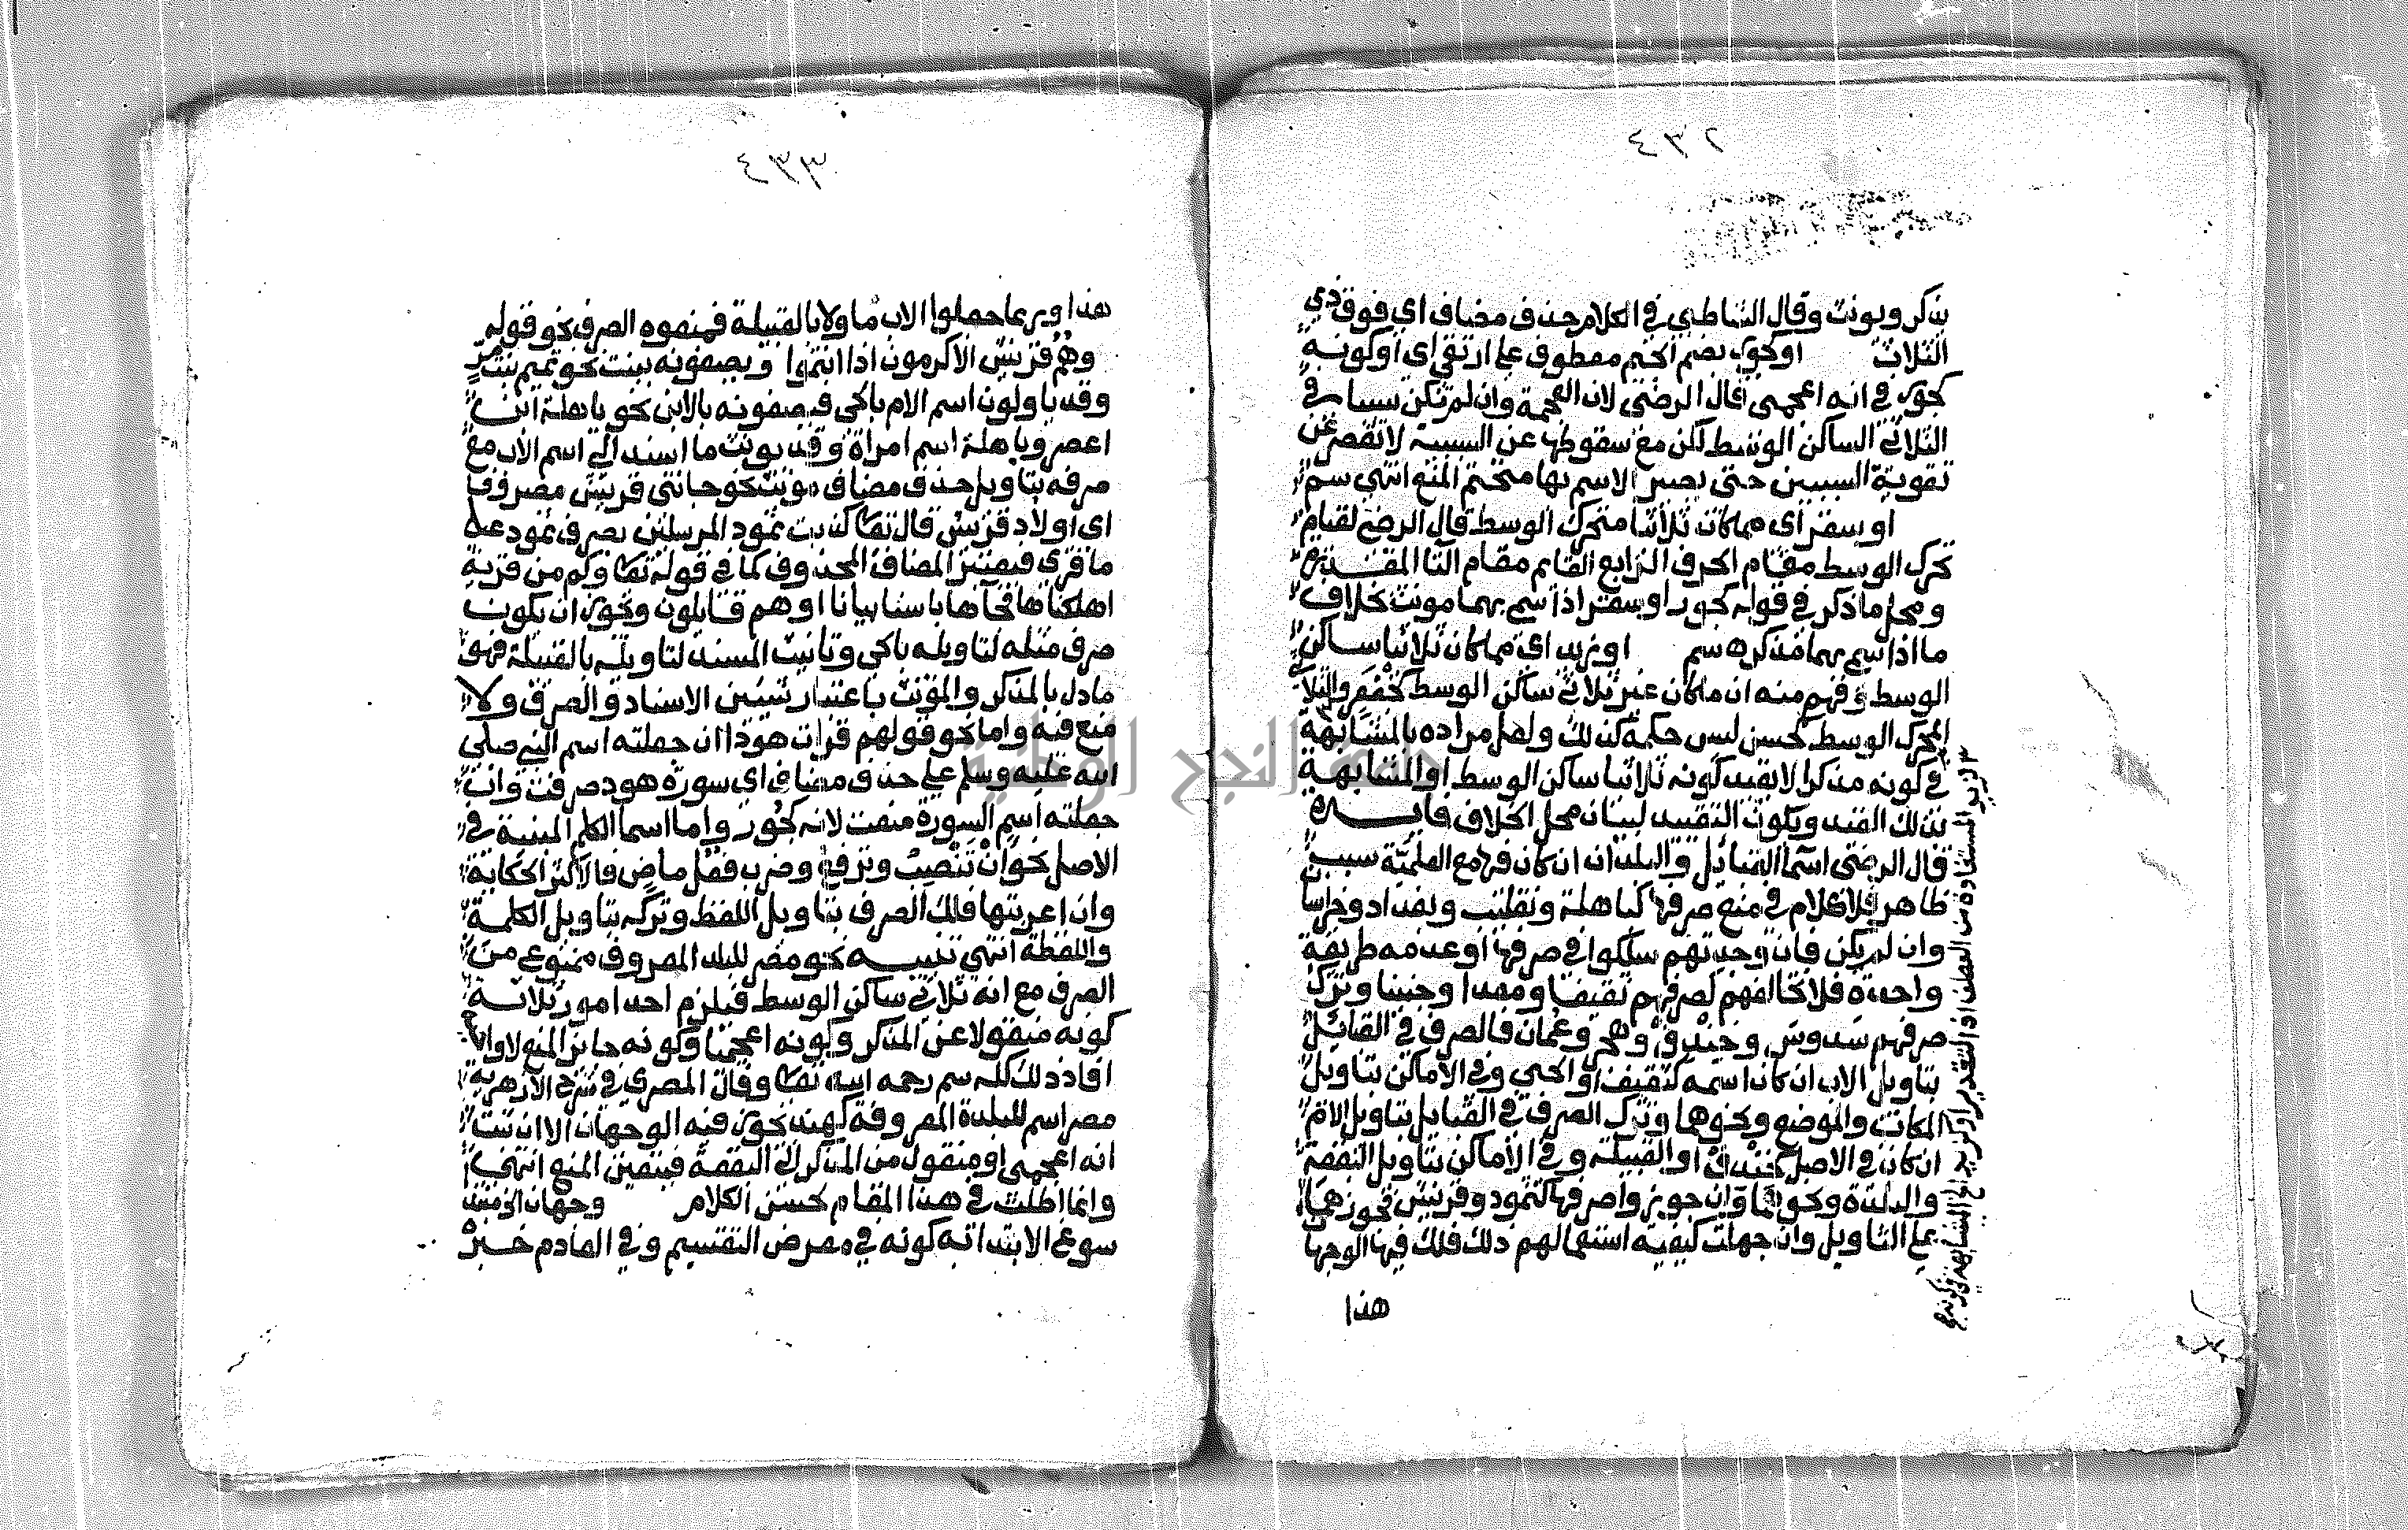 ٤٣٢
يذكر ويونث وقال الشاطبي في الكلام حذف مضاف اي فوق ذي
الثلاث او كجور بضم الجيم معطوف على ارتقى اي او كونه
كجور في انه اعجمي قال الرضى لان العجمة وان لم تكن سببا في
الثلاثي الساكن الوسط لكن مع سقوطها عن السببية لا تقصر عن
تقوية السببين حتى يصير الاسم بها متحتم المنع انتهى سم
او سقر اي مما كان ثلاثيا متحرك الوسط قال الرضى لقيام
تحرك الوسط مقام الحرف الرابع القايم مقام التا المقدرة
ومحل ما ذكر في قوله كجور او سقر اذا سمي بهما مونث بخلاف
ما اذا سمي بهما مذكر ه سم او زيد اي مما كان ثلاثيا ساكن
الوسط وفهم منه ان ما كان غير ثلاثي ساكن الوسط كجعفر والثلاثي
المحرك الوسط كحسن ليس حكمه كذلك ولعل مراده بالمشابهة
في كونه مذكرا لا بقيد كونه ثلاثيا ساكن الوسط او المشابهة
بذلك القيد ويكون التقييد لبيان محل الخلاف فايده
قال الرضى اسما القبائل والبلدان ان كان فيها مع العلمية سبب
ظاهر فلا كلام في منع صرفها كباهلة وتغلب وبغداد وخراسان
وان لم يكن فان وجدتهم سلكوا في صرفها او عدمه طريقة
واحدة فلا تخالفهم كصرفهم ثقيفا ومعدا وحنينا وترك
صرفهم سدوس وخندف وهجر وعمان فالصرف في القبائل
بتاويل الاب ان كان اسمه كثقيف او الحي وفي الاماكن بتاويل
المكان والموضع ونحوها وترك الصرف في القبايل بتاويل الام
ان كان في الاصل كخندف او القبيلة وفي الاماكن بتاويل البقعة
والبلدة ونحوهما وان جوزوا صرفها كثمود وقريش فجوزهما
على التاويل وان جهلت كيفية استعمالهم ذلك فلك فيها الوجهان
هذا
٤٣٣
هذا وربما حملوا الاب ماولا بالقبيلة فمنعوه الصرف نحو قوله
وهم قريش الاكرمون اذا انتموا ويصفونه ببنت نحو تميم بنت مر
وقد ياولون اسم الام بالحي فيصفونه بالابن نحو باهلة ابن
اعصر وباهلة اسم امراة وقد يونث ما اسند الى اسم الاب مع
صرفه بتاويل حذف مضاف مونث نحو جاتني قريش مصروفا
اي اولاد قريش قال تعا كذبت ثمود المرسلين بصرف ثمود على
ما قري فيعتبر المضاف المحذوف كما في قوله تعا وكم من قرية
اهلكناها فجاها باسنا بياتا او هم قايلون ويجوز ان يكون
صرف مثله لتاويله بالحي وتانيث المسند لتاويله بالقبيلة فهو
مادل بالمذكر والمؤنث باعتبار شيئين الاسناد والصرف ولا
منع فيه واما نحو قولهم قرات هودا ان جعلته اسم النبي صلى
الله عليه وسلم على حذف مضاف اي سورة هود صرفت وان
جعلته اسم السورة منعت لانه كجور واما اسما الكلم المبنية في
الاصل نحو ان تنصب وترفع وضرب فعل ماض فالاكثر الحكاية
وان اعربتها فلك الصرف بتاويل اللفظ وتركه بتاويل الكلمة
واللفظة انتهى تنبيه نحو مصر للبلد المعروف ممنوع من
الصرف مع انه ثلاثي ساكن الوسط فيلزم احد امور ثلاثة
كونه منقولا عن المذكر وكونه اعجميا وكونه جائز المنع لا واجبه
افاد ذلك كله سم رحمه الله تعا وقال المصري في شرح الازهرية
مصر اسم للبلدة المعروفة كهند يجوز فيه الوجهان الا ان ثبت
انه اعجمي او منقول من المذكر الى البقعة فيتعين المنع انتهى
وانما اطلت في هذا المقام لحسن الكلام وجهان الخ مبتدا
سوغ الابتدا به كونه في معرض التقسيم وفي العادم خبر